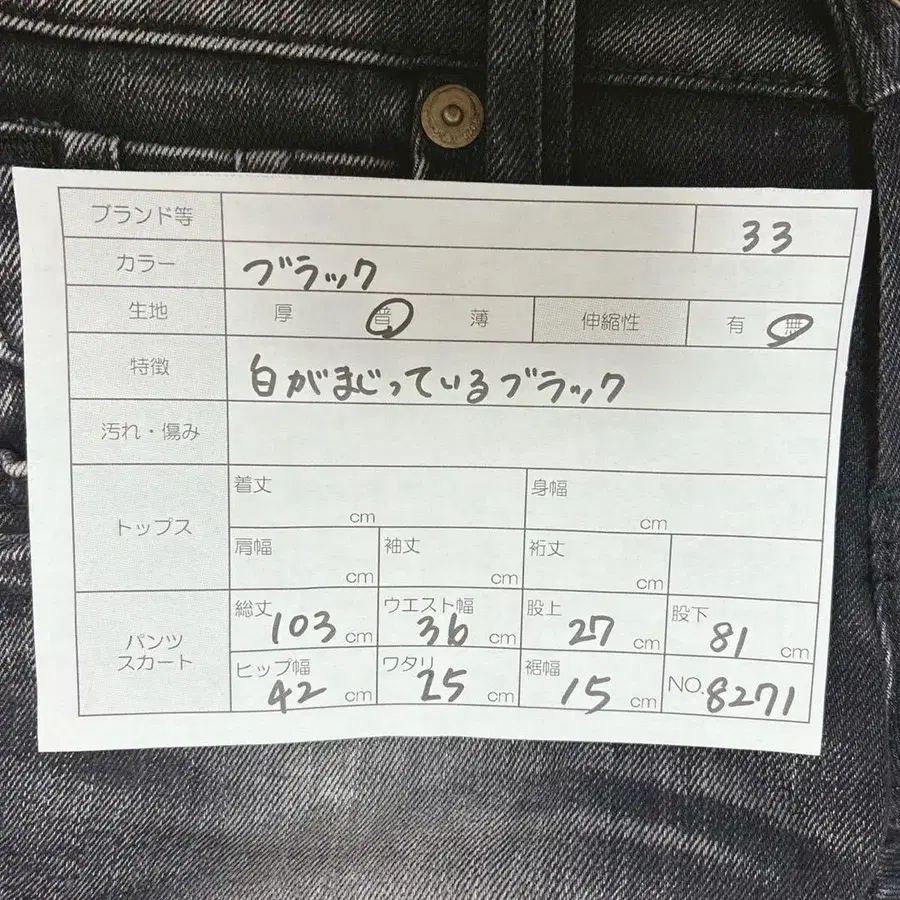 ブランド等 33
カラー ブラック
生地 厚 普 薄 伸縮性 有 無
特徴 白がまじっているブラック
汚れ・傷み
トップス
着丈 cm 身幅 cm
肩幅 cm 袖丈 cm 裄丈 cm
パンツ
スカート
総丈 103 cm ウエスト幅 36 cm 股上 27 cm 股下 81 cm
ヒップ幅 42 cm ワタリ 25 cm 裾幅 15 cm NO. 8271